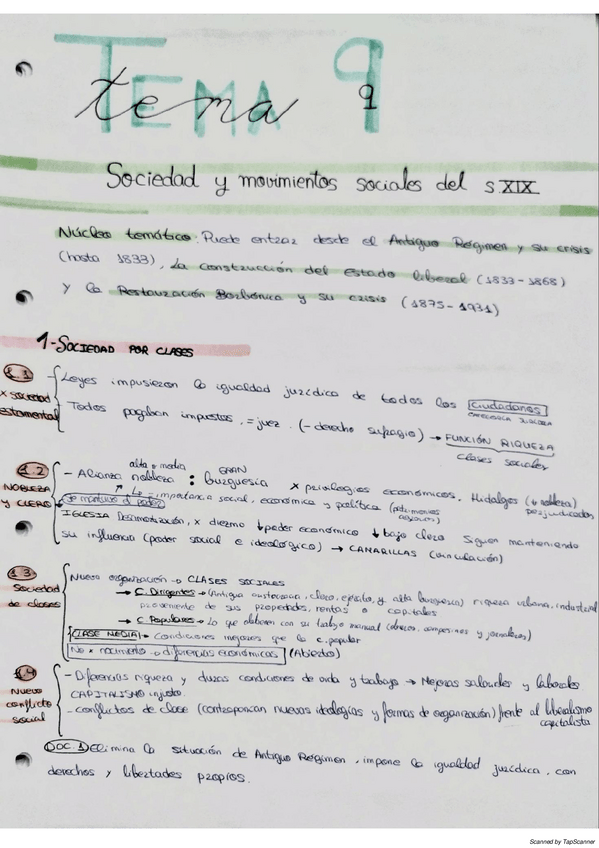 TEMA 9
tema 9
Sociedad y movimientos sociales del s.XIX
Núcleo temático: Puede entrar desde el Antiguo Régimen y su crisis
(hasta 1833), la construcción del estado liberal (1833-1868)
y la Restauración Borbónica y su crisis (1875-1931)
1-SOCIEDAD POR CLASES
1.1
x sociedad
estamental
Leyes impusieron la igualdad jurídica de todos los ciudadanos
CATEGORÍA JURÍDICA
Todos pagaban impuestos, = juez. (- derecho sufragio) → FUNCIÓN RIQUEZA
clases sociales
1.2
NOBLEZA
Y CLERO
alta o media GRAN
- Alianza nobleza : burguesía x privilegios económicos. Hidalgos (↓ nobleza)
perjudicados
Se mantuvo el poder → - importancia social, económica y política (patrimonios
IGLESIA Desamortización, x diezmo ↓ poder económico ↓ bajo clero Siguen manteniendo
su influencia (poder social e ideológico) → CAMARILLAS (vinculación)
1.3
Sociedad
de clases
Nueva organización → CLASES SOCIALES
→ C. Dirigentes → (Antigua aristocracia, clero, ejército, y alta burguesía) riqueza urbana, industrial
proveniente de sus propiedades, rentas o capitales
→ C. Populares → Lo que obtienen con su trabajo manual (obreros, campesinos y jornaleros)
CLASE MEDIA → Condiciones mejores que la c. popular
No x nacimiento → diferencias económicas (Abierto)
1.4
Nuevo
conflicto
social
- Diferencias riqueza y duras condiciones de vida y trabajo → Mejoras salariales y laborales
CAPITALISMO injusto.
- conflictos de clase (contraponían nuevas ideologías y formas de organización) frente al liberalismo
capitalista
DOC 1 Elimina la situación de Antiguo Régimen, impone la igualdad jurídica, con
derechos y libertades propios.
Scanned by TapScanner